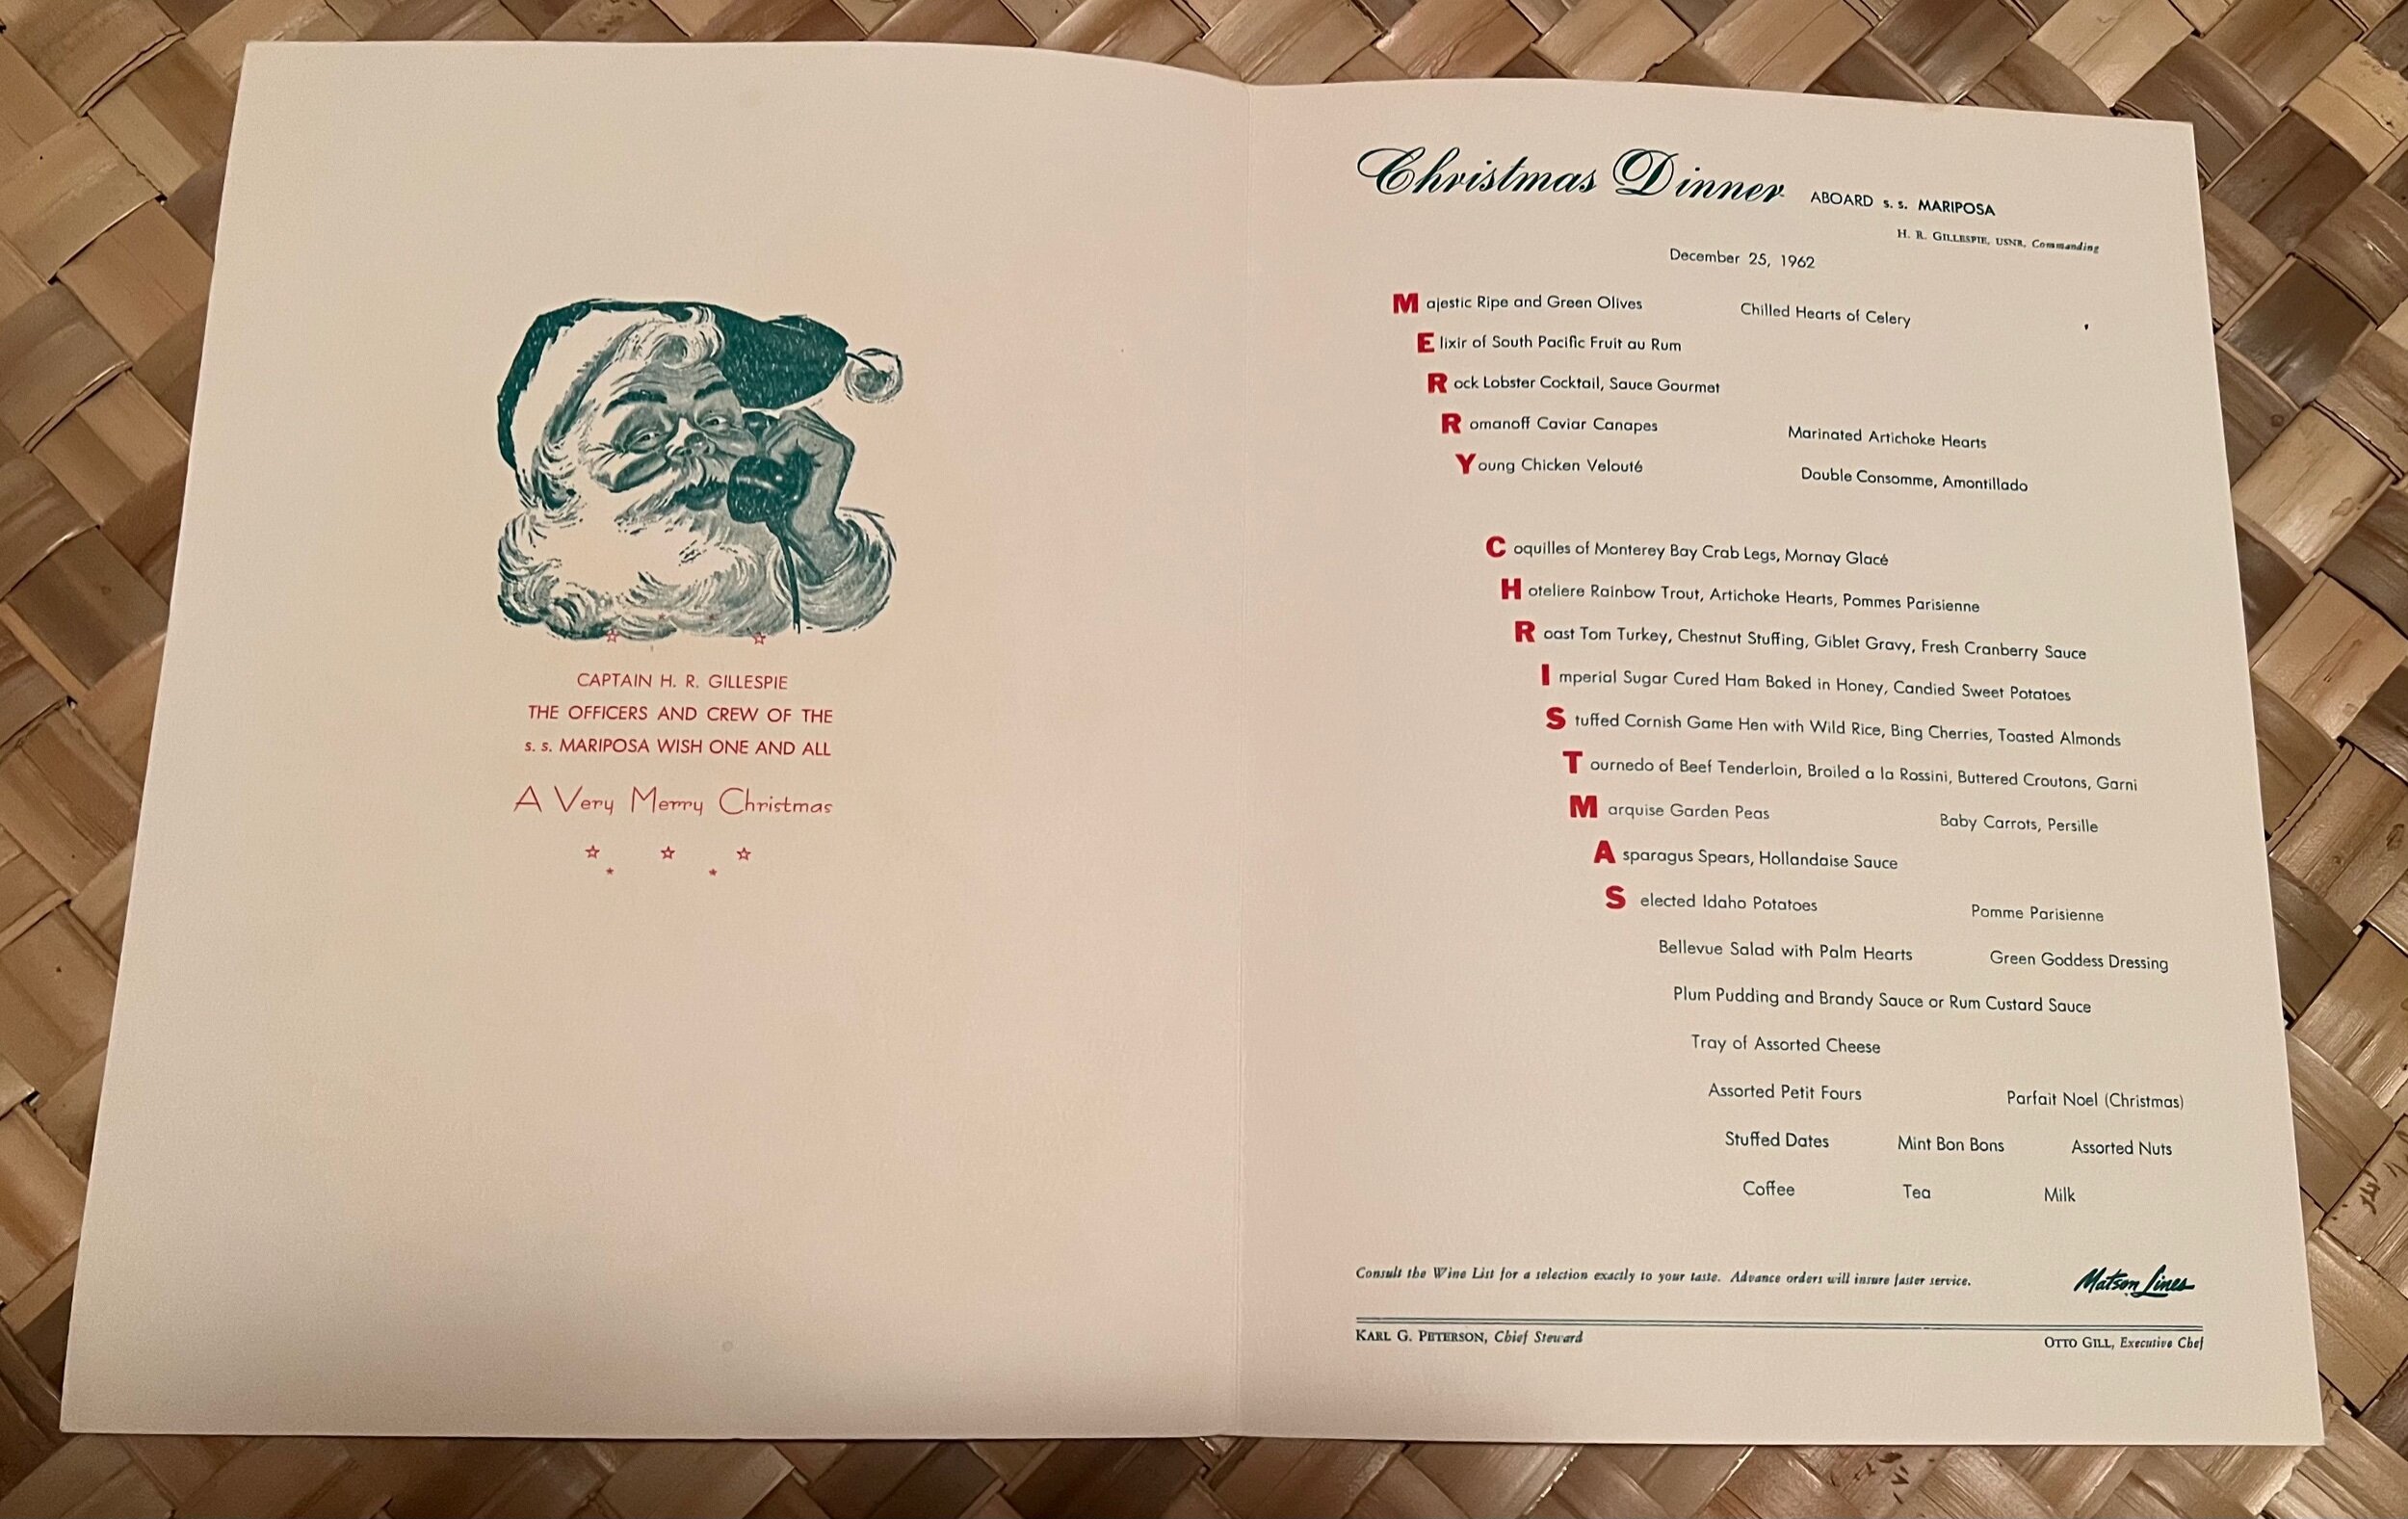 CAPTAIN H. R. GILLESPIE
THE OFFICERS AND CREW OF THE
s. s. MARIPOSA WISH ONE AND ALL
A Very Merry Christmas
Christmas Dinner ABOARD s. s. MARIPOSA
H. R. GILLESPIE, USNR, Commanding
December 25, 1962
Majestic Ripe and Green Olives Chilled Hearts of Celery
Elixir of South Pacific Fruit au Rum
Rock Lobster Cocktail, Sauce Gourmet
Romanoff Caviar Canapes Marinated Artichoke Hearts
Young Chicken Velouté Double Consomme, Amontillado
Coquilles of Monterey Bay Crab Legs, Mornay Glacé
Hoteliere Rainbow Trout, Artichoke Hearts, Pommes Parisienne
Roast Tom Turkey, Chestnut Stuffing, Giblet Gravy, Fresh Cranberry Sauce
Imperial Sugar Cured Ham Baked in Honey, Candied Sweet Potatoes
Stuffed Cornish Game Hen with Wild Rice, Bing Cherries, Toasted Almonds
Tournedo of Beef Tenderloin, Broiled a la Rossini, Buttered Croutons, Garni
Marquise Garden Peas Baby Carrots, Persille
Asparagus Spears, Hollandaise Sauce
Selected Idaho Potatoes Pomme Parisienne
Bellevue Salad with Palm Hearts Green Goddess Dressing
Plum Pudding and Brandy Sauce or Rum Custard Sauce
Tray of Assorted Cheese
Assorted Petit Fours Parfait Noel (Christmas)
Stuffed Dates Mint Bon Bons Assorted Nuts
Coffee Tea Milk
Consult the Wine List for a selection exactly to your taste. Advance orders will insure faster service.
Matson Lines
KARL G. PETERSON, Chief Steward
OTTO GILL, Executive Chef